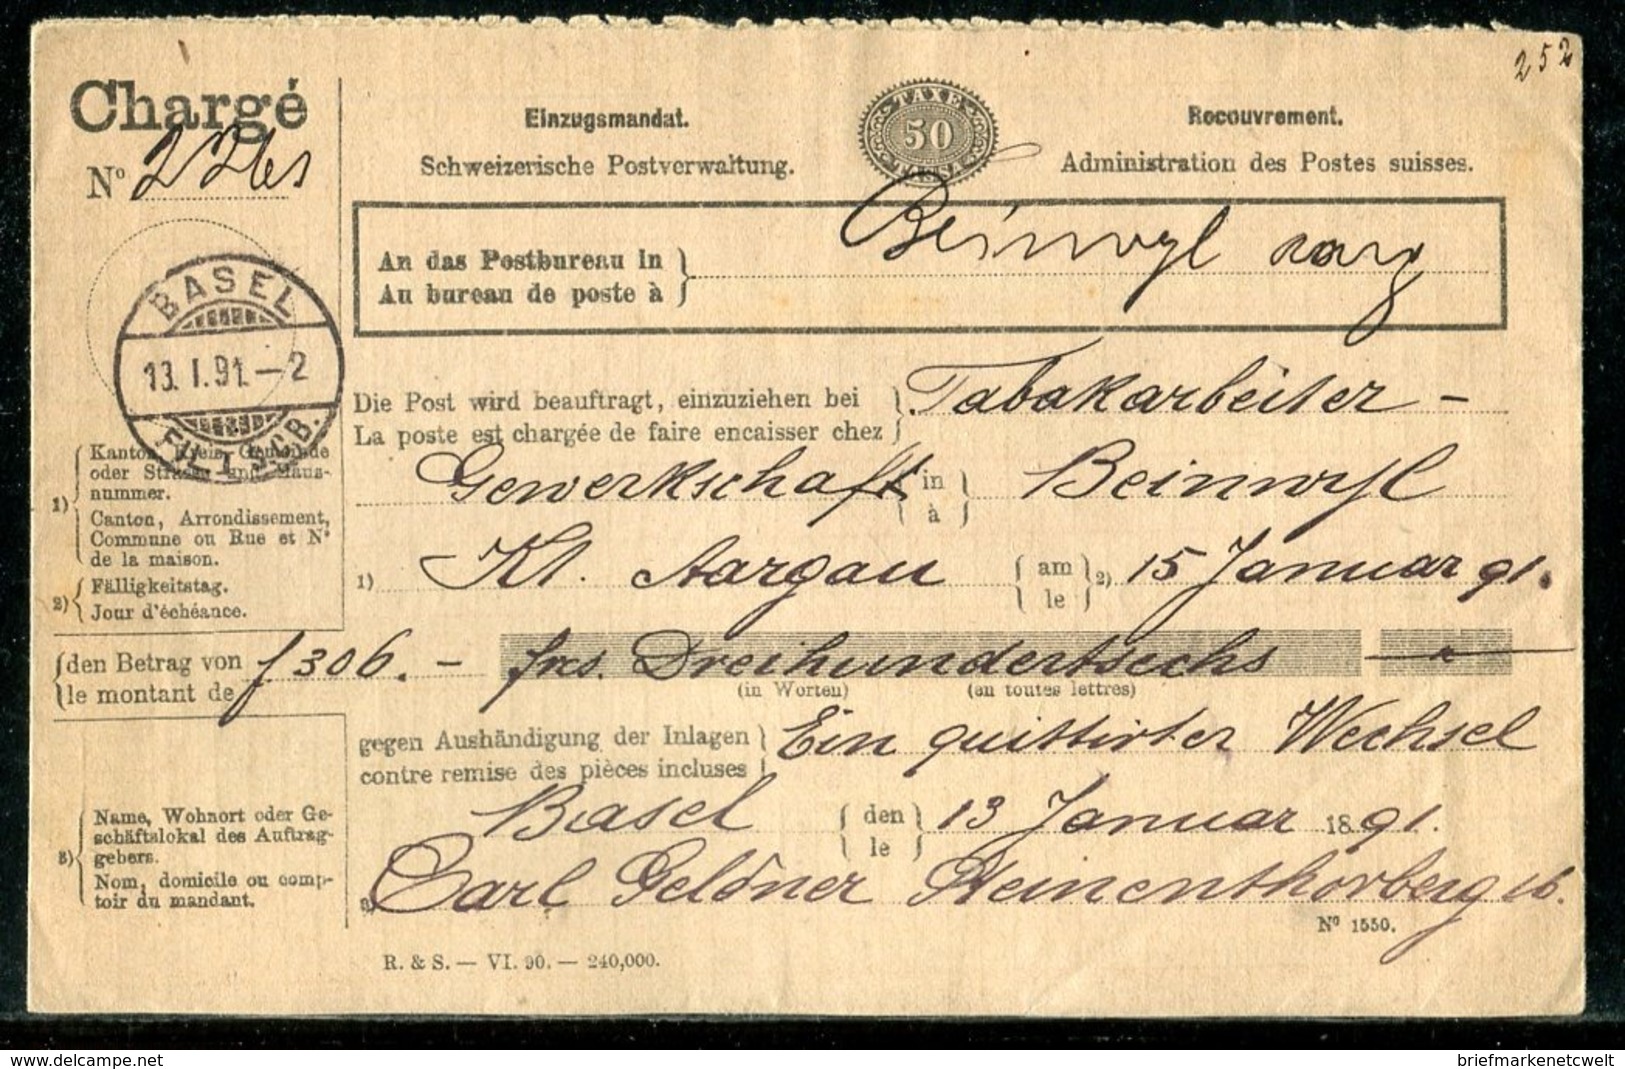 252
Chargé
Nº
Einzugsmandat.
Schweizerische Postverwaltung.
TAXE
50
Recouvrement.
Administration des Postes suisses.
An das Postbureau in
Au bureau de poste à
Beinwyl
BASEL
13. I. 91. – 2
Die Post wird beauftragt, einzuziehen bei
La poste est chargée de faire encaisser chez
Tabakarbeiter –
Gewerkschaft in à Beinwyl
1) Kt. Aargau am le 2) 15 Januar 91.
1) Kanton, Kreis, Gemeinde
oder Strasse und Haus-
nummer.
Canton, Arrondissement,
Commune ou Rue et Nº
de la maison.
2) Fälligkeitstag.
Jour d'échéance.
den Betrag von
le montant de
f 306. – frcs. Dreihundertsechs
(in Worten) (en toutes lettres)
gegen Aushändigung der Inlagen
contre remise des pièces incluses
Ein quittirter Wechsel
Basel den le 13 Januar 1891.
3) Name, Wohnort oder Ge-
schäftslokal des Auftrag-
gebers.
Nom, domicile ou comp-
toir du mandant.
3) Carl Geldner 16.
Nº 1550.
R. & S. — VI. 90. — 240,000.
briefmarkenetcwelt
www.delcampe.net